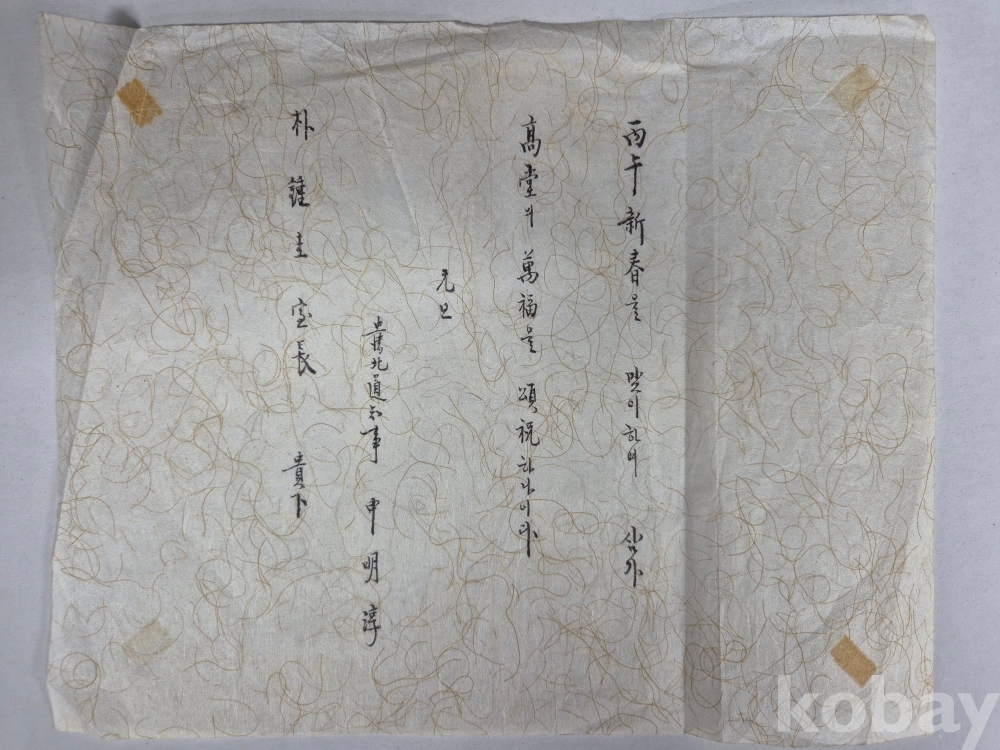 丙午 新春을 맞이하여 삼가
高堂의 萬福을 頌祝하나이다
元旦
忠淸北道知事 申明淳
朴鍾圭 室長 貴下
kobay